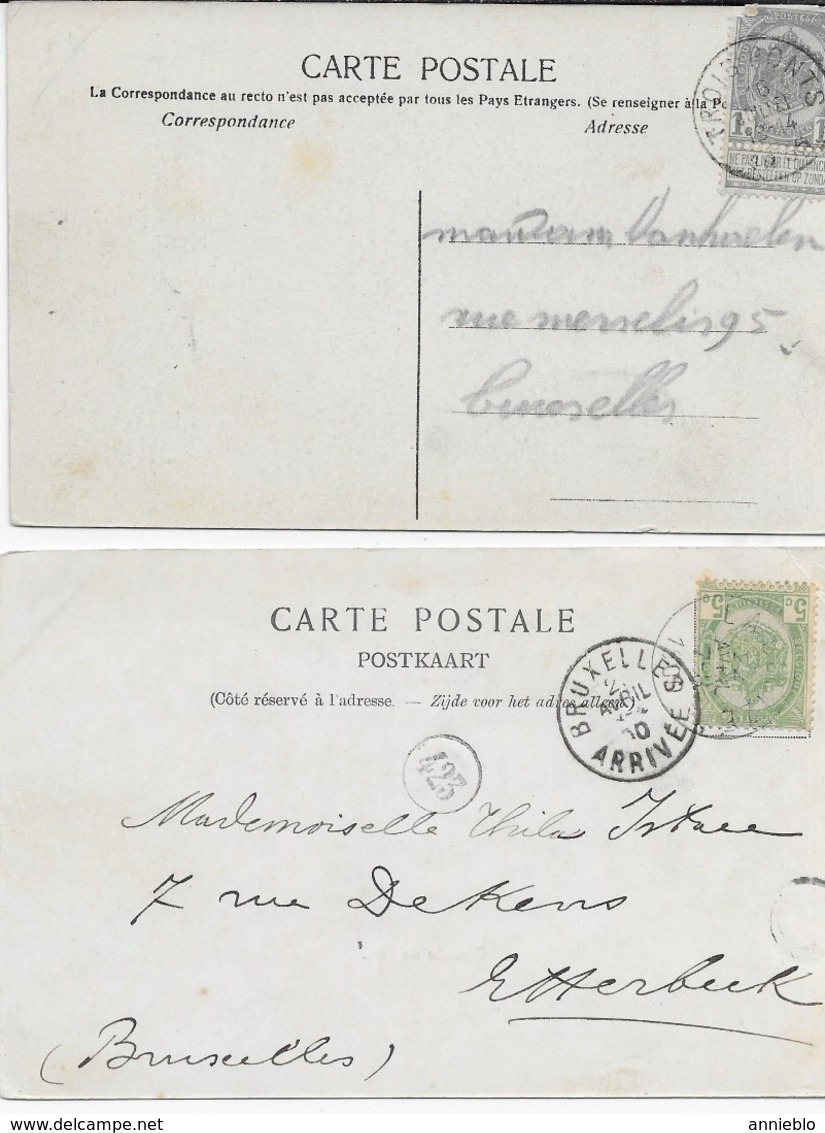 CARTE POSTALE
La Correspondance au recto n'est pas acceptée par tous les Pays Etrangers. (Se renseigner à la Po
Correspondance
Adresse
TROIS PONTS
1c
1
NE PAS LIVRER LE DIMANCH
NIET BESTELLEN OP ZONDA
Vanhaelen
rue 95
bruxelles
CARTE POSTALE
POSTKAART
(Côté réservé à l'adresse. — Zijde voor het adres alleen.)
5c
5c
BRUXELLES
AVRIL
ARRIVÉE
423
Mademoiselle
7 rue De Kens
Etterbeek
(Bruxelles)
annieblo